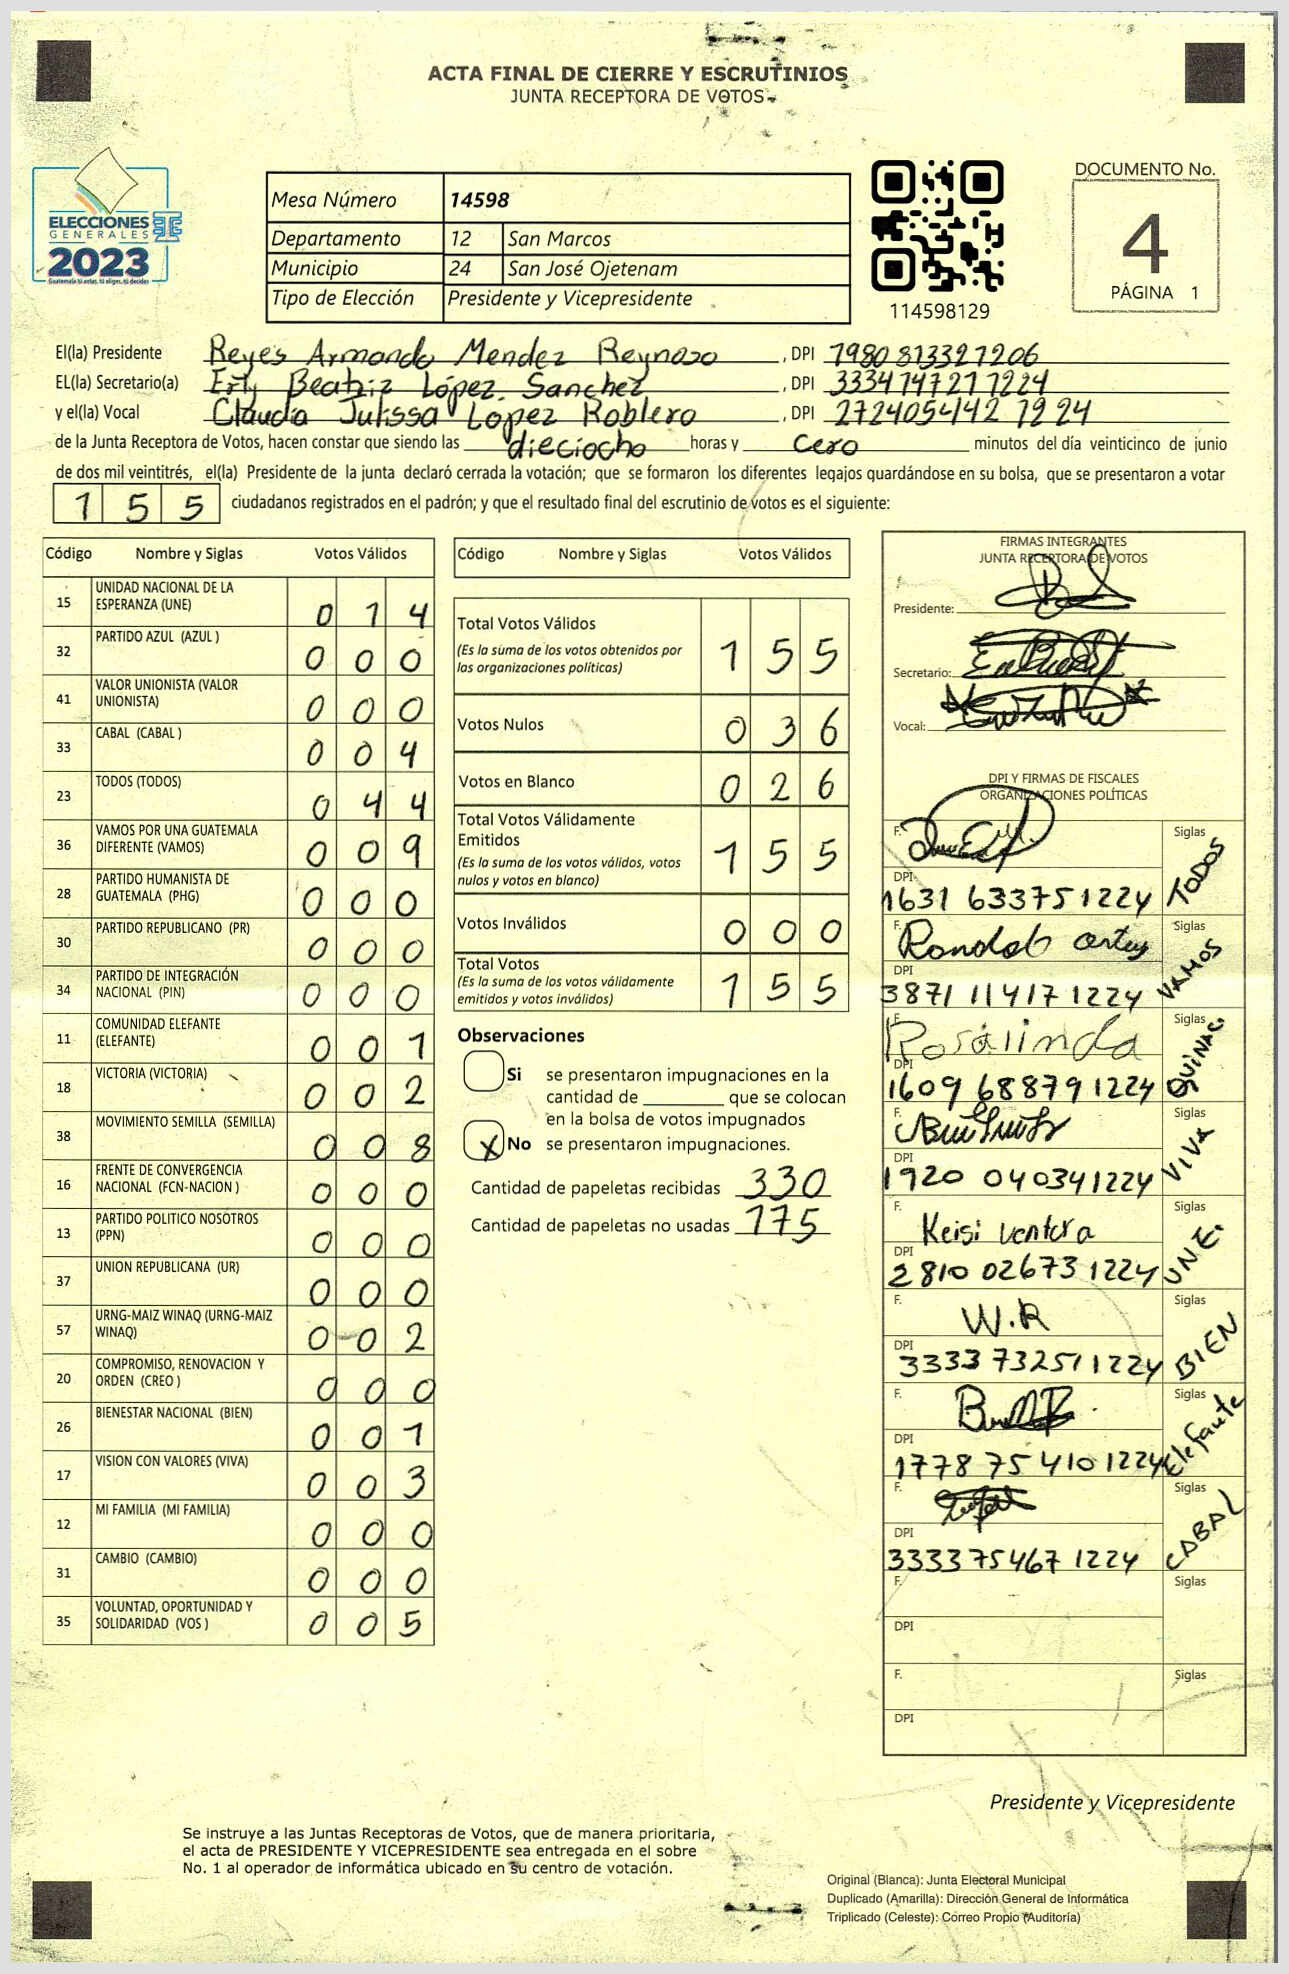 ACTA FINAL DE CIERRE Y ESCRUTINIOS
JUNTA RECEPTORA DE VOTOS
ELECCIONES
GENERALES
2023
Guatemala tú eres, tú eliges, tú decides
Mesa Número 14598
Departamento 12 San Marcos
Municipio 24 San José Ojetenam
Tipo de Elección Presidente y Vicepresidente
114598129
DOCUMENTO No.
4
PÁGINA 1
El(la) Presidente Reyes Armando Mendez Reynoso , DPI 1980 81332 1206
EL(la) Secretario(a) Esly Beatriz López Sanchez , DPI 3334 14721 1224
y el(la) Vocal Claudia Julissa López Roblero , DPI 2724054421224
de la Junta Receptora de Votos, hacen constar que siendo las dieciocho horas y cero minutos del día veinticinco de junio
de dos mil veintitrés, el(la) Presidente de la junta declaró cerrada la votación; que se formaron los diferentes legajos guardándose en su bolsa, que se presentaron a votar
1 5 5 ciudadanos registrados en el padrón; y que el resultado final del escrutinio de votos es el siguiente:
Código Nombre y Siglas Votos Válidos
15 UNIDAD NACIONAL DE LA ESPERANZA (UNE) 0 1 4
32 PARTIDO AZUL (AZUL ) 0 0 0
41 VALOR UNIONISTA (VALOR UNIONISTA) 0 0 0
33 CABAL (CABAL ) 0 0 4
23 TODOS (TODOS) 0 4 4
36 VAMOS POR UNA GUATEMALA DIFERENTE (VAMOS) 0 0 9
28 PARTIDO HUMANISTA DE GUATEMALA (PHG) 0 0 0
30 PARTIDO REPUBLICANO (PR) 0 0 0
34 PARTIDO DE INTEGRACIÓN NACIONAL (PIN) 0 0 0
11 COMUNIDAD ELEFANTE (ELEFANTE) 0 0 1
18 VICTORIA (VICTORIA) 0 0 2
38 MOVIMIENTO SEMILLA (SEMILLA) 0 0 8
16 FRENTE DE CONVERGENCIA NACIONAL (FCN-NACION ) 0 0 0
13 PARTIDO POLITICO NOSOTROS (PPN) 0 0 0
37 UNION REPUBLICANA (UR) 0 0 0
57 URNG-MAIZ WINAQ (URNG-MAIZ WINAQ) 0 0 2
20 COMPROMISO, RENOVACION Y ORDEN (CREO ) 0 0 0
26 BIENESTAR NACIONAL (BIEN) 0 0 1
17 VISION CON VALORES (VIVA) 0 0 3
12 MI FAMILIA (MI FAMILIA) 0 0 0
31 CAMBIO (CAMBIO) 0 0 0
35 VOLUNTAD, OPORTUNIDAD Y SOLIDARIDAD (VOS ) 0 0 5
Código Nombre y Siglas Votos Válidos
Total Votos Válidos 1 5 5
(Es la suma de los votos obtenidos por
las organizaciones políticas)
Votos Nulos 0 3 6
Votos en Blanco 0 2 6
Total Votos Válidamente
Emitidos 1 5 5
(Es la suma de los votos válidos, votos
nulos y votos en blanco)
Votos Inválidos 0 0 0
Total Votos 1 5 5
(Es la suma de los votos válidamente
emitidos y votos inválidos)
Observaciones
Si se presentaron impugnaciones en la
cantidad de que se colocan
en la bolsa de votos impugnados
X No se presentaron impugnaciones.
Cantidad de papeletas recibidas 330
Cantidad de papeletas no usadas 175
FIRMAS INTEGRANTES
JUNTA RECEPTORA DE VOTOS
Presidente:
Secretario:
Vocal:
DPI Y FIRMAS DE FISCALES
ORGANIZACIONES POLÍTICAS
F. Siglas TODOS
DPI 1631 63375 1224
F. Siglas VAMOS
DPI 3871 11417 1224
F. Rosalinda Siglas
DPI 1609 68879 1224
F. Siglas VIVA
DPI 1920 04034 1224
F. Keisi Ventura Siglas UNE.
DPI 2810 02673 1224
F. W.R Siglas BIEN
DPI 3333 73251 1224
F. Siglas Elefante
DPI 1778 75410 1224
F. Siglas CABAL
DPI 3333 75467 1224
F. Siglas
DPI
F. Siglas
DPI
Presidente y Vicepresidente
Se instruye a las Juntas Receptoras de Votos, que de manera prioritaria,
el acta de PRESIDENTE Y VICEPRESIDENTE sea entregada en el sobre
No. 1 al operador de informática ubicado en su centro de votación.
Original (Blanca): Junta Electoral Municipal
Duplicado (Amarilla): Dirección General de Informática
Triplicado (Celeste): Correo Propio (Auditoría)